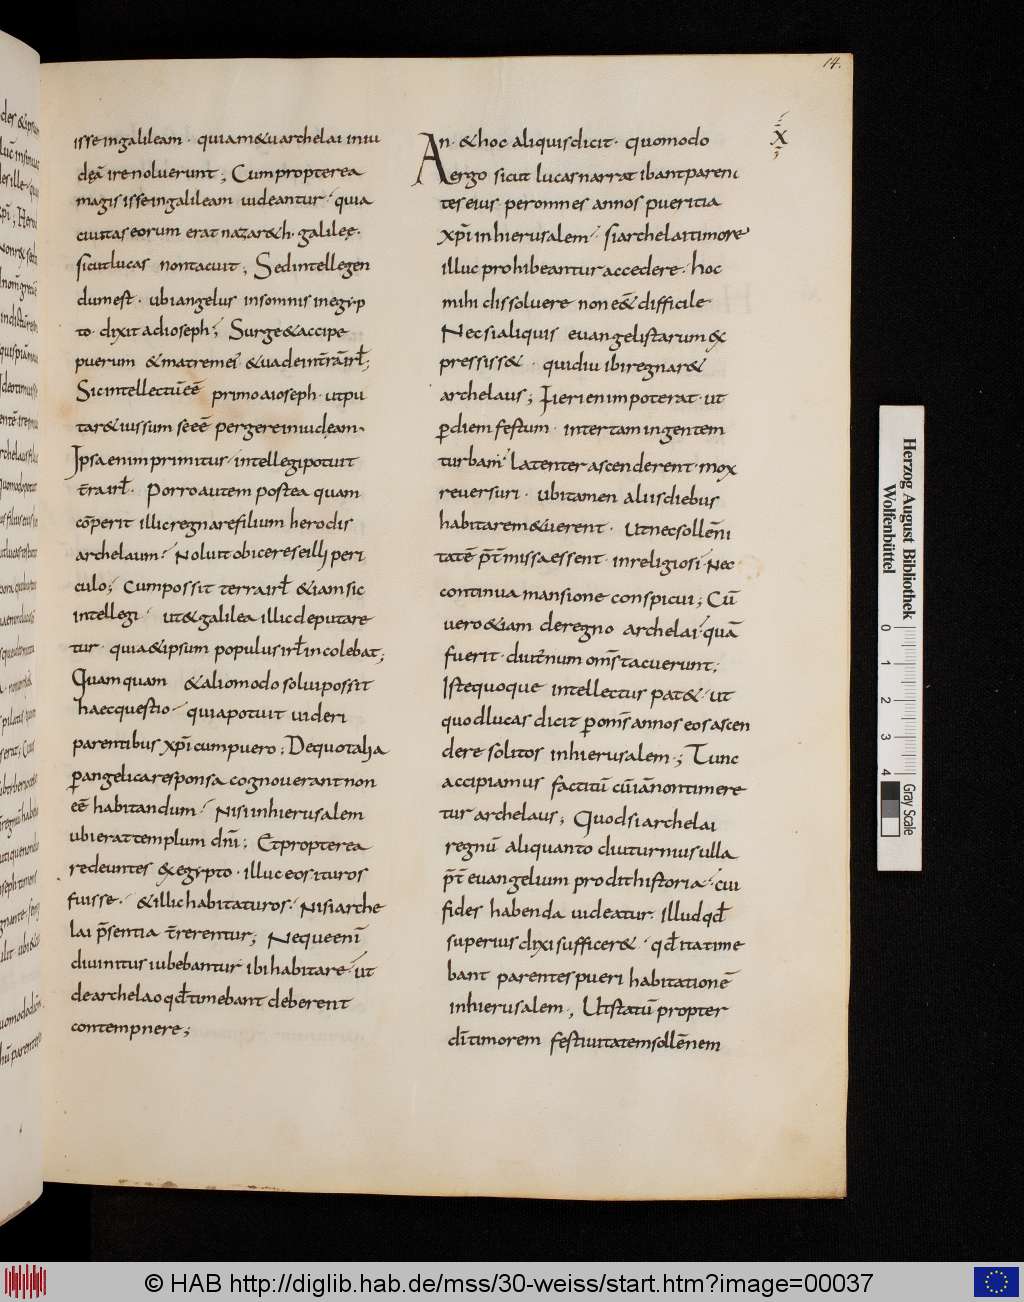 14.
isse ingalileam · quiam&uarchelai iniu
dęā ire noluerunt ; Cumpropterea
magis isse ingalileam uideantur · quia
ciuitas eorum erat nazar&h · galileę ·
sicut lucas non tacuit ; Sed intellegen
dum est · ubi angelus in somnis in egyp
to · dixit ad ioseph ; Surge & accipe
puerum & matrem ei & uade in t̄rā irł ;
Sic intellectū eē primo a ioseph · ut pu
tar& iussum se eē pergere in iudęam ·
Ipsa enim primitur · intellegi potuit
t̄ra irł · Porro autem postea quam
cōperit illic regnare filium herodis
archelaum · Noluit obicere se illi peri
culo ; Cum possit terra irł & iam sic
intellegi · ut & galilea illic deputare
tur · quia & ipsum populus irł incolebat ;
Quam quam & alio modo solui possit
haec questio · quia potuit uideri
parentibus xpi cum puero ; De quo talia
p angelica responsa cognouerant non
eē habitandum · Nisi in hierusalem
ubi erat templum dn̄i ; Et propterea
redeuntes ex egypto · illuc eos ituros
fuisse · & illic habitaturos · Nisi arche
lai p̄sentia t̄rerentur ; Neque enī
diuinitus iubebantur ibi habitare · ut
de archelao qđ timebant deberent
contempnere ;
X
An · & hoc aliquis dicit · quomodo
ergo sicut lucas narrat ibant paren
tes eius per omnes annos pueritia
xp̄i in hierusalem · si archelai timore
illuc prohibeantur accedere · hoc
mihi dissoluere non eē difficile
Nec si aliquis euangelistarum ex
pressiss& · quidiu ibi regnar&
archelaus ; Fieri enim poterat · ut
p diem festum · inter tam ingentem
turbam · latenter ascenderent · mox
reuersuri · ubi tamen aliis diebus
habitarem&uerent · Ut nec sollēni
tatē p̄t̄missa essent · inreligiosi · Nec
continua mansione conspicui ; Cū
uero &iam de regno archelai · quā
fuerit · diut̄num om̄s tacuerunt ;
Iste quoque intellectus pat& · ut
quod lucas dicit p om̄s annos eos ascen
dere solitos in hierusalem · ; Tunc
accipiamus factitū cū iā non timere
tur archelaus ; Quod si archelai
regnū aliquanto diuturnius ulla
p̄t̄ euangelium prodit historia · cui
fides habenda uideatur · Illud qđ
superius dixi sufficer& · qđ ita time
bant parentes pueri habitationē
in hierusalem , Ut statū propter
dī timorem festiuitatem sollēnem
Herzog August Bibliothek
Wolfenbüttel
0 1 2 3 4
Gray Scale
© HAB http://diglib.hab.de/mss/30-weiss/start.htm?image=00037